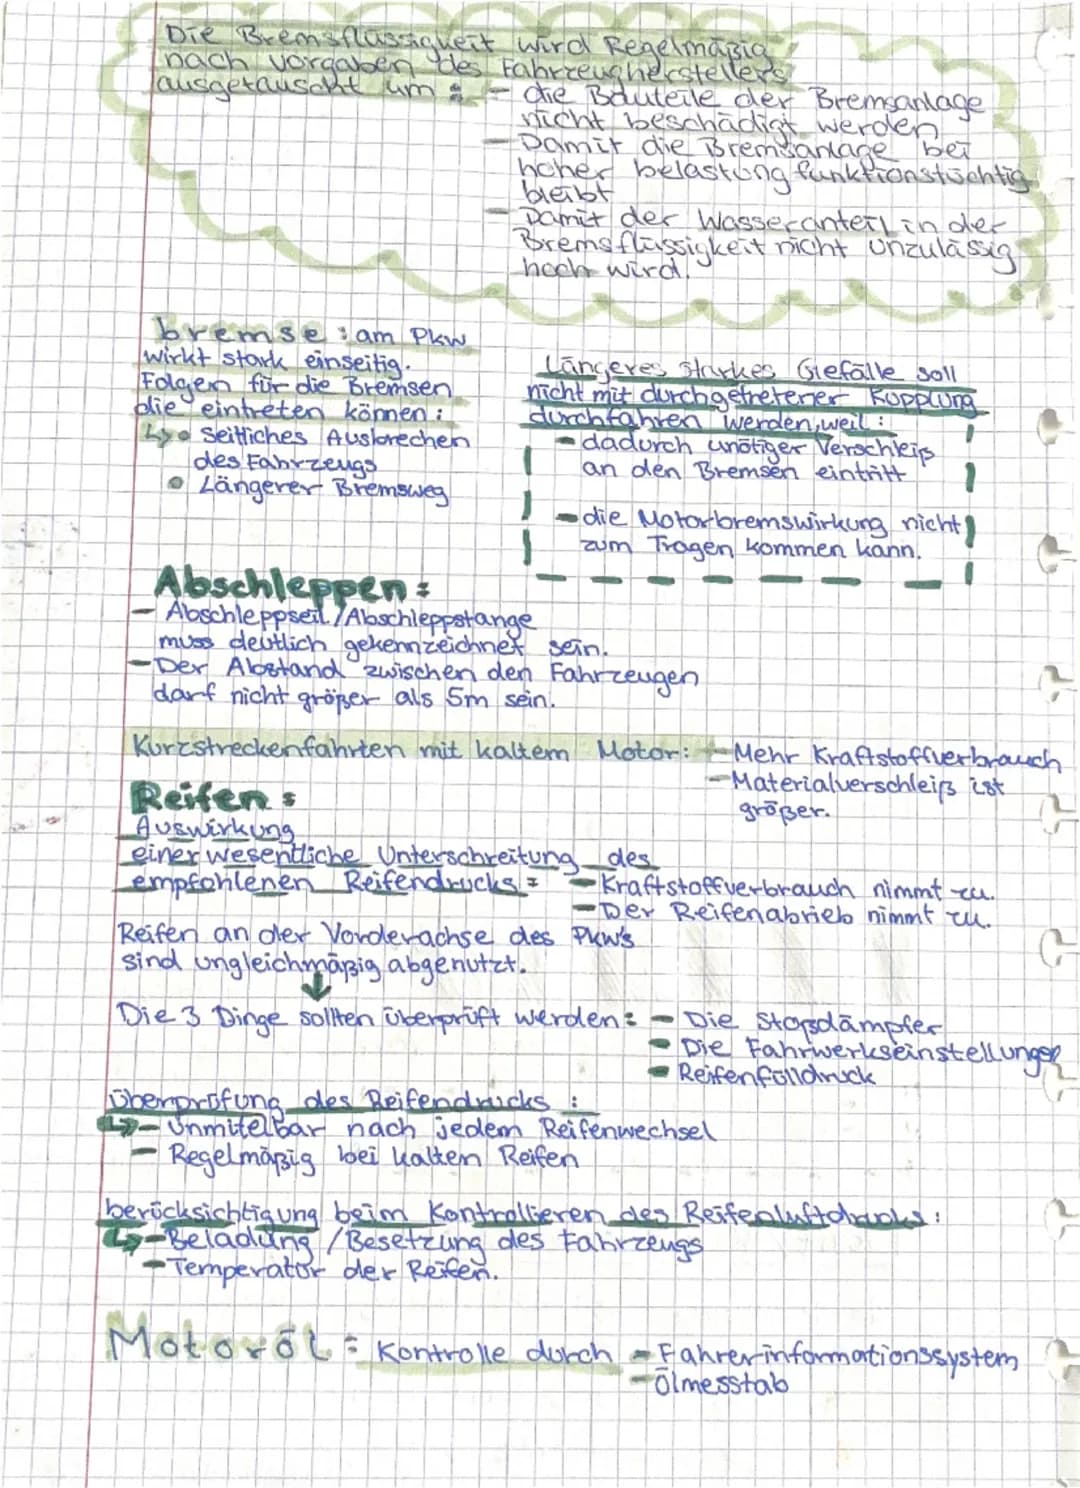 Die Bremsflüssigkeit wird Regelmäßig
nach vorgaben des Fahrzeugherstellers
ausgetauscht um : - die Bauteile der Bremsanlage
nicht beschädigt werden
- Damit die Bremsanlage bei
hoher belastung funktionstüchtig
bleibt
- Damit der Wasseranteil in der
Bremsflüssigkeit nicht unzulässig
hoch wird.
bremse : am Pkw
wirkt stark einseitig.
Folgen für die Bremsen
die eintreten können :
↳• Seitliches Ausbrechen
des Fahrzeugs
• Längerer Bremsweg
Längeres starkes Gefälle soll
nicht mit durchgetretener Kupplung
durchfahren werden, weil :
- dadurch unötiger Verschleiß
an den Bremsen eintritt
- die Motorbremswirkung nicht
zum Tragen kommen kann.
Abschleppen :
- Abschleppseil / Abschleppstange
muss deutlich gekennzeichnet sein.
- Der Abstand zwischen den Fahrzeugen
darf nicht größer als 5m sein.
Kurzstreckenfahrten mit kaltem Motor: - Mehr Kraftstoffverbrauch
- Materialverschleiß ist
größer.
Reifen :
Auswirkung
einer wesentliche Unterschreitung des
empfohlenen Reifendrucks : - Kraftstoffverbrauch nimmt zu.
- Der Reifenabrieb nimmt zu.
Reifen an der Vorderachse des PKW's
sind ungleichmäßig abgenutzt.
↓
Die 3 Dinge sollten überprüft werden : - Die Stoßdämpfer
- Die Fahrwerkseinstellungen
- Reifenfülldruck
Überprüfung des Reifendrucks :
↳ - Unmitelbar nach jedem Reifenwechsel
- Regelmäßig bei kalten Reifen
berücksichtigung beim Kontrollieren des Reifenluftdrucks :
↳ - Beladung / Besetzung des Fahrzeugs
- Temperatur der Reifen.
Motoröl : Kontrolle durch - Fahrerinformationssystem
- Ölmesstab